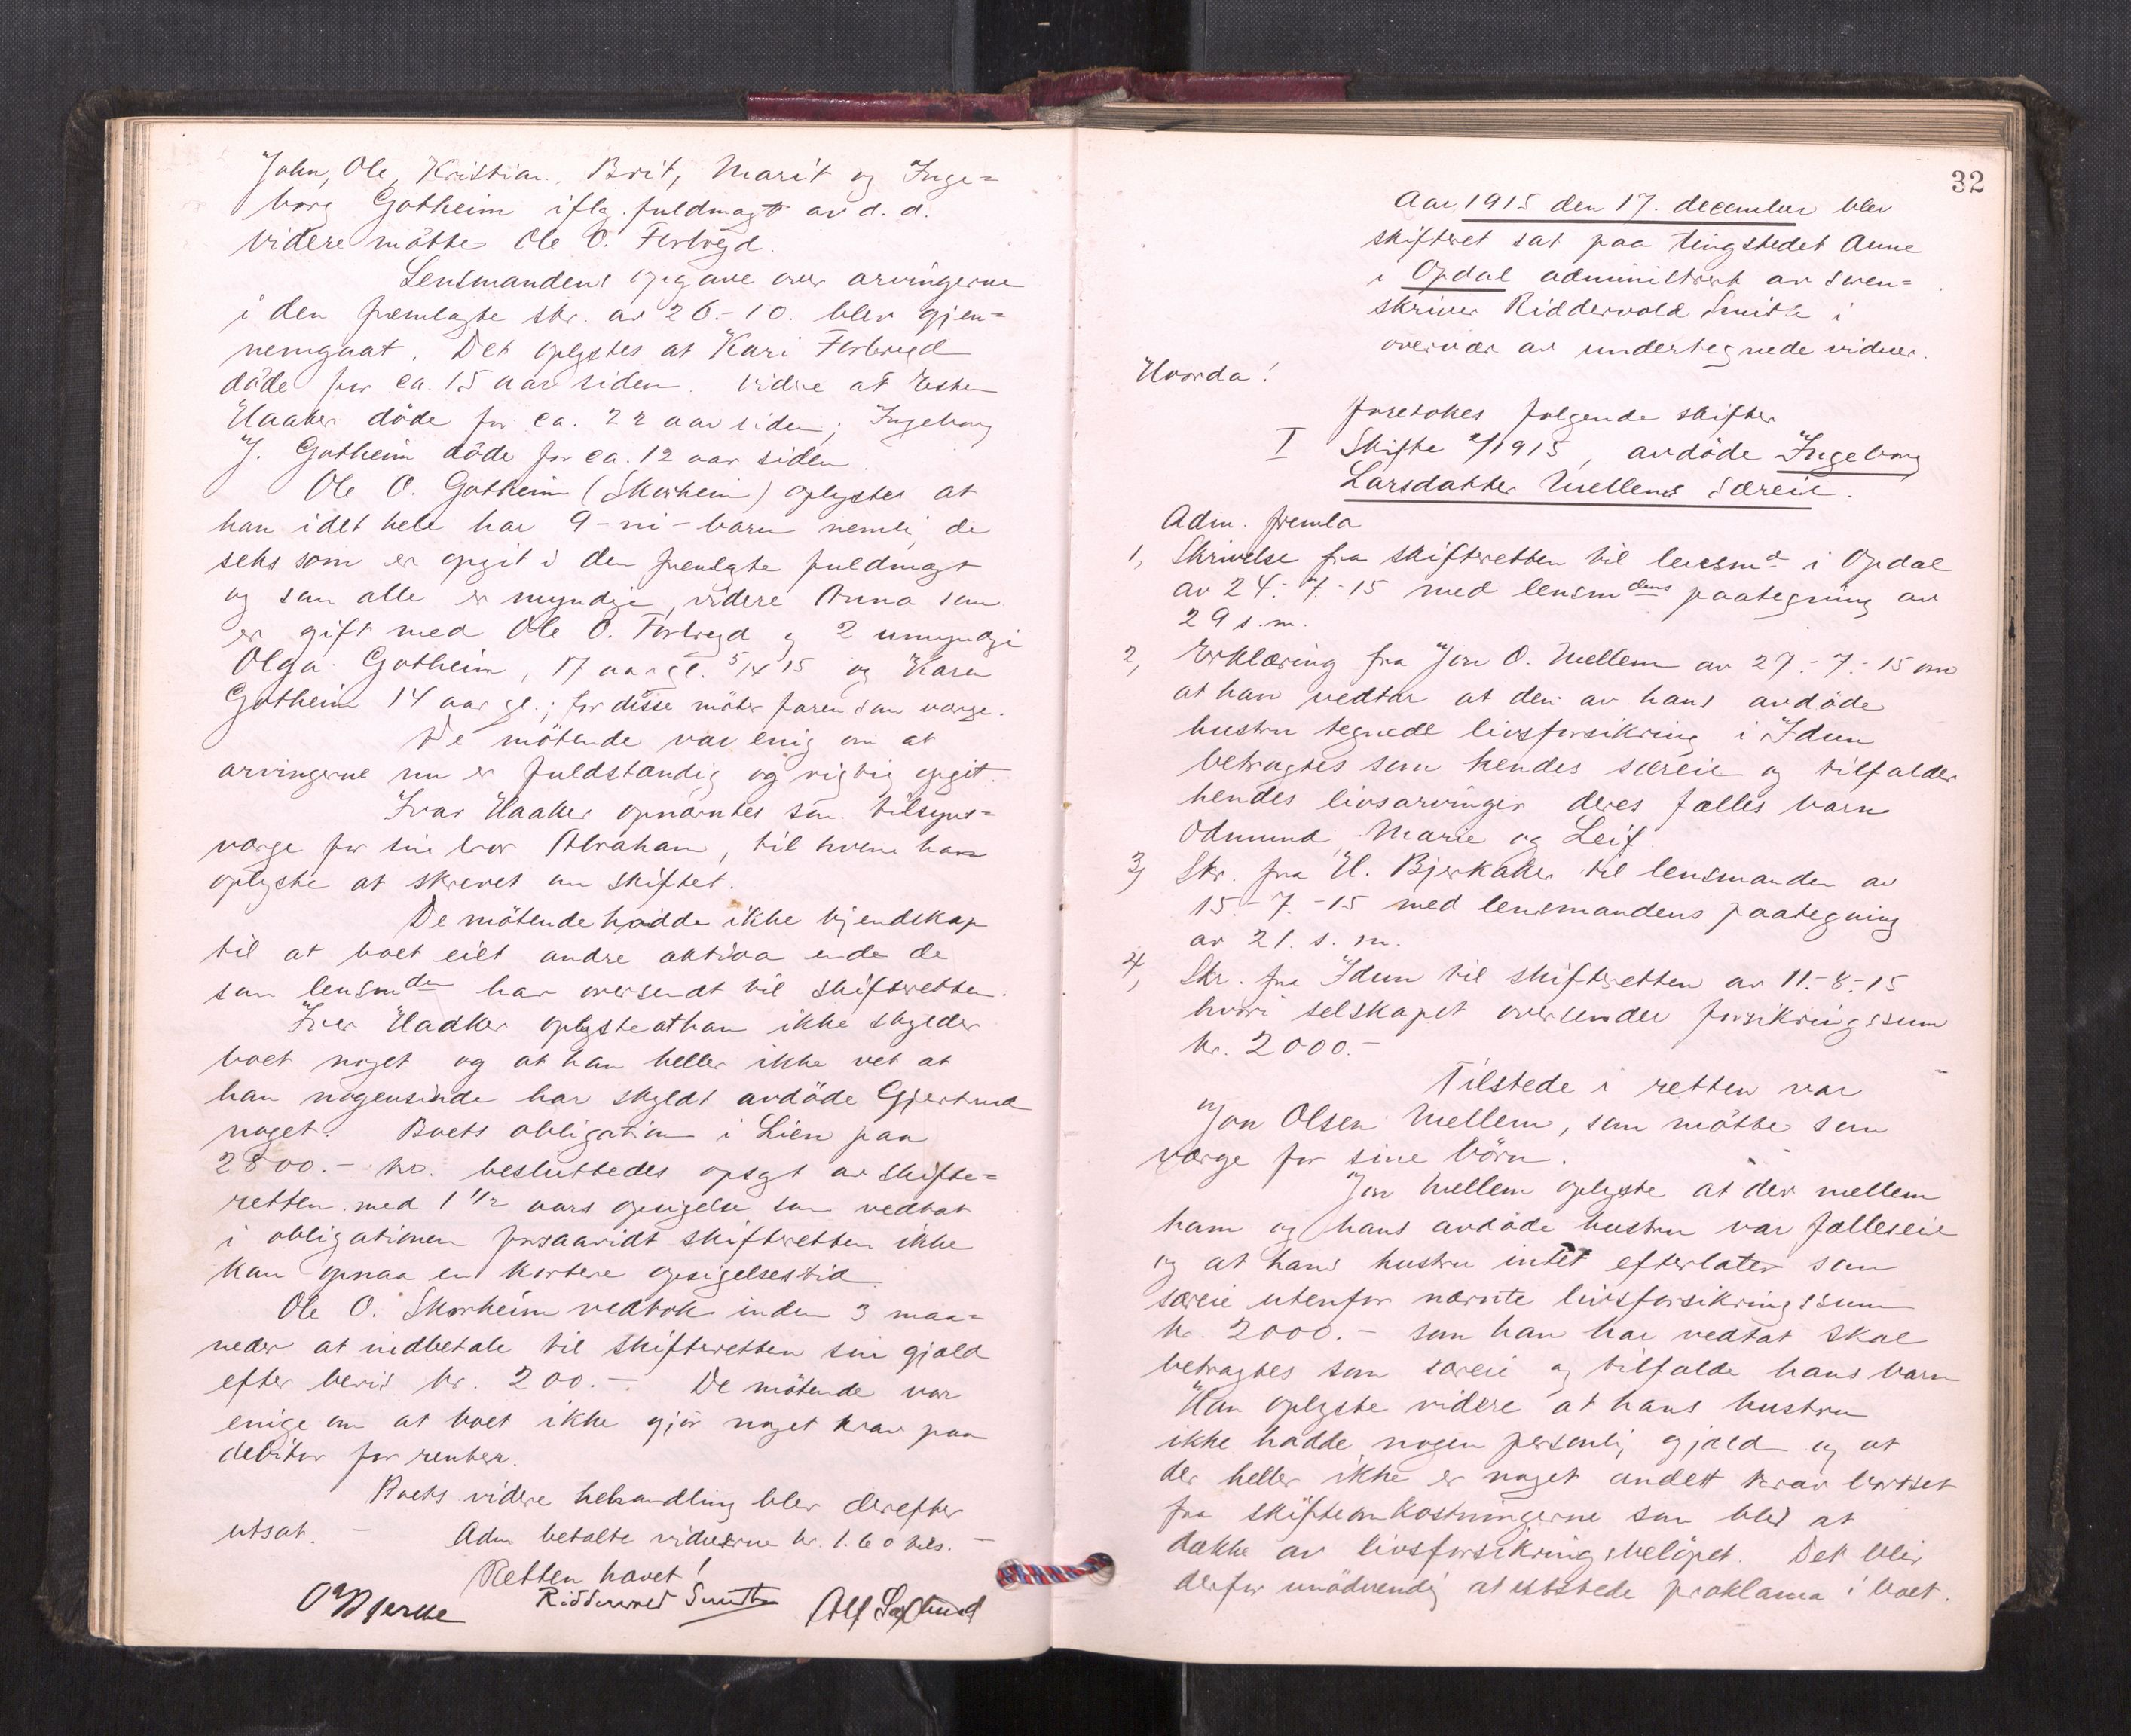 John, Ole, Kristian, Brit, Marit og Inge=
borg Gotheim iflg. fuldmagt av d. d.
videre mötte Ole O. Forbregd.
Lensmandens opgave over arvingerne
i den fremlagte skr. av 26.-10. blev gjen=
nemgaat. Det oplystes at Kari Forbregd
döde for ca. 15 aar siden. Videre at Esten
Haaker döde for ca. 22 aar siden; Ingeborg
J. Gotheim döde for ca. 12 aar siden.
Ole O. Gotheim (Skorheim) oplyster at
han i det hele har 9-ni-barn nemlig de
seks som er opgit i den fremlagte fuldmagt
og som alle er myndige, videre Anna som
er gift med Ole O. Forbregd og 2 umyndige
Olga Gotheim, 17 aar gl. 5/4 15 og Karen
Gotheim 14 aar gl.; for disse möter faren som verge.
De mötende var enig om at
arvingerne nu er fuldstændig og rigtig opgit.
Ivar Haaker opnævntes som tilsyns=
verge for sin bror Abraham, til hvem han
oplyste at skrevet om skiftet.
De mötende hadde ikke kjendskap
til at boet eiet andre aktiva ende de
som lensmden har oversendt til skifteretten.
Iver Haaker oplyste at han ikke skylder
boet noget og at han heller ikke vet at
han nogensinde har skyldt avdöde Gjertrud
noget. Boets obligation i Lien paa
2800.- kr. besluttedes opsagt av skifte=
retten med 1 1/2 aars opsigelse som vedtat
i obligationen forsaavidt skifteretten ikke
kan opnaa en kortere opsigelsestid.
Ole O. Skorheim vedtok inden 3 maa=
neder at indbetale til skifteretten sin gjæld
efter bevis kr. 200.- De mötende var
enige om at boet ikke gjör noget krav paa
debitor for renter.
Boets videre behandling blev derefter
utsat. - Adm betalte vidnerne kr. 1.60 tils. -
Retten hævet!
O Bjerke Riddervold Smith Alf
32
Aar 1915 den 17. december blev
skifteret sat paa tingstedet Aune
i Opdal administrert av soren=
skriver Riddervold Smith i
overvær av undertegnede vidner.
Hvorda!
foretokes følgende skifter
I Skifte /1915, avdöde Ingeborg
Larsdatter Mellems særeie.
Adm. fremla
1, Skrivelse fra skifteretten til lensmd i Opdal
av 24.-7.-15 med lensmdens paategning av
29 s.m.
2, Erklæring fra Jon O. Mellem av 27.-7.-15 om
at han vedtar at den av hans avdöde
hustru tegnede livsforsikring i Idun
betragtes som hendes særeie og tilfalder
hendes livsarvinger deres fælles barn
Odmund, Marie og Leif.
3, Skr. fra H. Bjerkaker til lensmanden av
15.-7.-15 med lensmandens paategning
av 21. s. m.
4, Skr. fra Idun til skifteretten av 11.-8.-15
hvori selskapet oversender forsikringssum
kr. 2000.-
Tilstede i retten var
Jon Olsen Mellem, som mötte som
verge for sine börn.
Jon Mellem oplyste at der mellem
ham og hans avdöde hustru var fælleseie
og at hans hustru intet efterlater som
særeie utenfor nævnte livsforsikringssum
kr. 2000.- som han har vedtat skal
betragtes som særeie og tilfalde hans barn
Han oplyste videre at hans hustru
ikke hadde nogen personlig gjæld og at
der heller ikke er noget andett krav bortset
fra skifteomkostningerne som blir at
dække av livsforsikringsbelöpet. Det blir
derfor unödvendig at utstede proklama i boet.